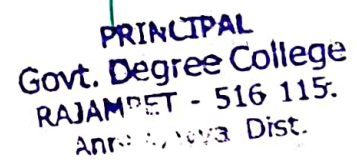 PRINCIPAL
Govt. Degree College
RAJAMPET - 516 115.
Dist.